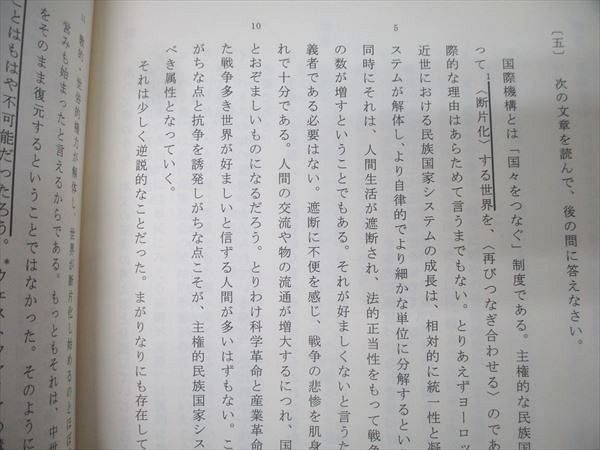 〔五〕 次の文章を読んで、後の問に答えなさい。
国際機構とは「国々をつなぐ」制度である。主権的な民族国
って、〈断片化〉する世界を、〈再びつなぎ合わせる〉のであ
1
際的な理由はあらためて言うまでもない。とりあえずヨーロッ
近世における民族国家システムの成長は、相対的に統一性と凝
5
ステムが解体し、より自律的でより細かな単位に分解するという
同時にそれは、人間生活が遮断され、法的正当性をもって戦争
の数が増すということでもある。それが好ましくないと言うた
義者である必要はない。遮断に不便を感じ、戦争の悲惨を肌身
れで十分である。人間の交流や物の流通が増大するにつれ、国
10
とおぞましいものになるだろう。とりわけ科学革命と産業革命
た戦争多き世界が好ましいと信ずる人間が多いはずもない。こ
がちな点と抗争を誘発しがちな点こそが、主権的民族国家シス
べき属性となっていく。
それは少しく逆説的なことだった。まがりなりにも存在して
教的・世俗的権力が解体し、世界が断片化し始めるのとほぼ
営みも始まったと言えるからである。もっともそれは、中世
をそのまま復元するということではなかった。そのように
ことはもはや不可能だったろう。